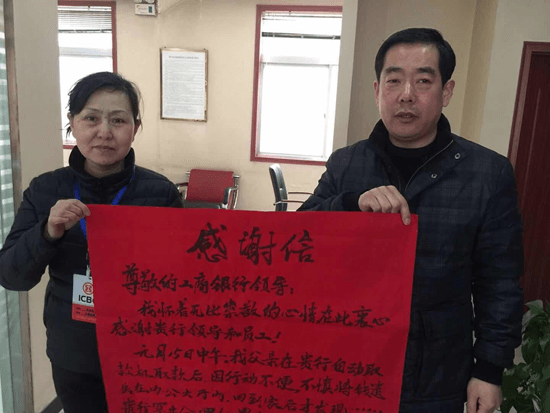 感谢信
尊敬的工商银行领导:
我怀着无比崇敬的心情在此衷心
感谢贵行领导和员工!
元月15日中午,我父亲在贵行自动取
款机取款后,因行动不便,不慎将钱遗
失在办公大厅内,回到家后才发现……
ICB